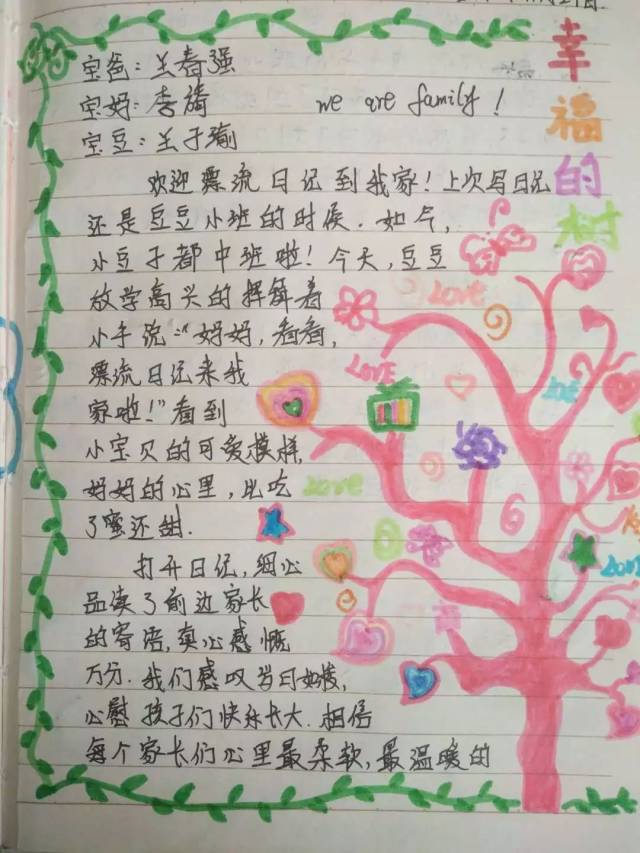 幸福的树
宝爸:兰春强
宝妈:李旖 we are family!
宝豆:兰子瑜
欢迎漂流日记到我家!上次写日记
还是豆豆小班的时候.如今,
小豆子都中班啦!今天,豆豆
放学高兴的挥舞着
小手说:"妈妈,看看,
漂流日记来我
家啦!"看到
小宝贝的可爱模样,
妈妈的心里,比吃
了蜜还甜.
打开日记,细心
品读了前边家长
的寄语,真心感慨
万分.我们感叹当妈
心慰孩子们快乐长大.相信
每个家长们心里最柔软,最温暖的
LOVE
LOVE
LOVE
LOVE